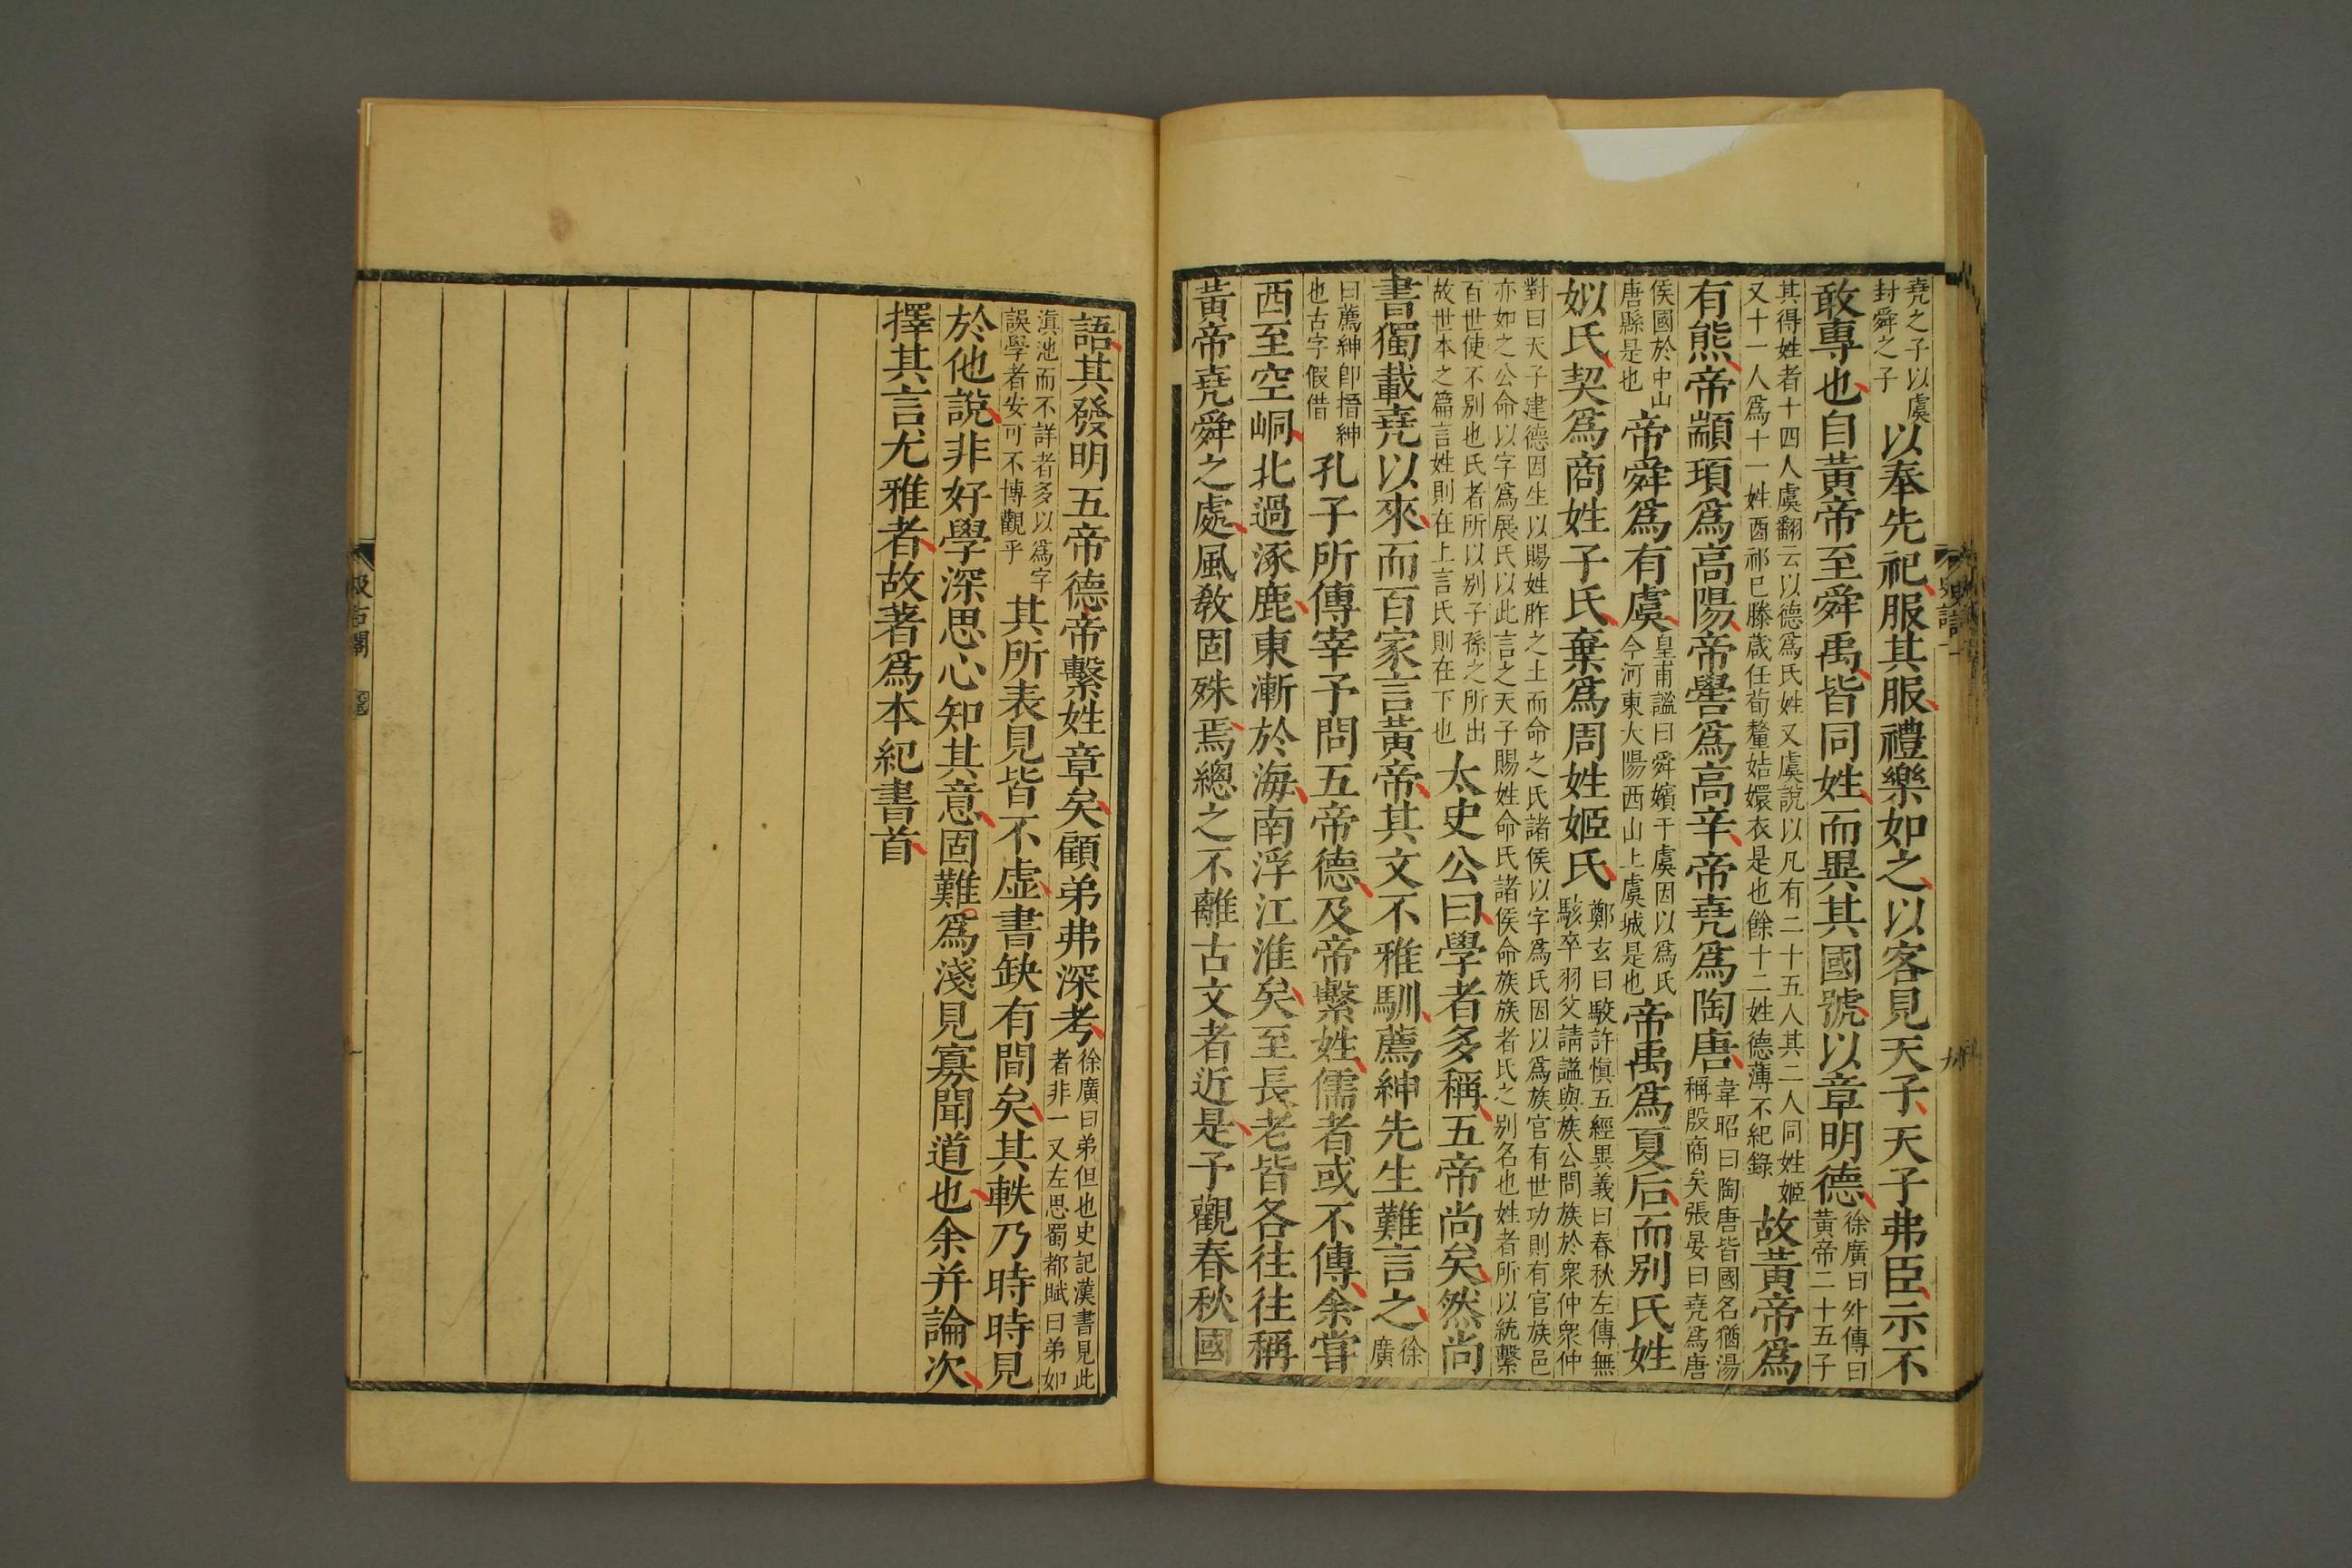 堯之子以虞封舜之子以奉先祀服其服禮樂如之以客見天子天子弗臣示不
敢專也自黃帝至舜禹皆同姓而異其國號以章明德徐廣曰外傳曰黃帝二十五子
其得姓者十四人虞翻云以德爲氏姓又虞說以凡有二十五人其二人同姓姬又十一人爲十一姓酉祁巳滕葴任荀釐姞嬛衣是也餘十二姓德薄不紀錄故黃帝爲
有熊帝顓頊爲高陽帝嚳爲高辛帝堯爲陶唐韋昭曰陶唐皆國名猶湯稱殷商矣張晏曰堯爲唐
侯國於中山唐縣是也帝舜爲有虞皇甫謐曰舜嬪于虞因以爲氏今河東大陽西山上虞城是也帝禹爲夏后而別氏姓
姒氏契爲商姓子氏棄爲周姓姬氏鄭玄曰駮許慎五經異義曰春秋左傳無駭卒羽父請謚與族公問族於衆仲衆仲
對曰天子建德因生以賜姓胙之土而命之氏諸侯以字爲氏因以爲族官有世功則有官族邑亦如之公命以字爲展氏以此言之天子賜姓命氏諸侯命族族者氏之别名也姓者所以統繫
百世使不别也氏者所以别子孫之所出故世本之篇言姓則在上言氏則在下也太史公曰學者多稱五帝尚矣然尚
書獨載堯以來而百家言黃帝其文不雅馴薦紳先生難言之徐廣
曰薦紳卽搢紳也古字假借孔子所傳宰予問五帝德及帝繫姓儒者或不傳余嘗
西至空峒北過涿鹿東漸於海南浮江淮矣至長老皆各往往稱
黃帝堯舜之處風敎固殊焉總之不離古文者近是予觀春秋國
史記一
九
語其發明五帝德帝繫姓章矣顧弟弗深考徐廣曰弟但也史記漢書見此者非一又左思蜀都賦曰弟如
滇池而不詳者多以爲字誤學者安可不博觀乎其所表見皆不虛書缺有間矣其軼乃時時見
於他說非好學深思心知其意固難爲淺見寡聞道也余并論次
擇其言尤雅者故著爲本紀書首
汲古閣